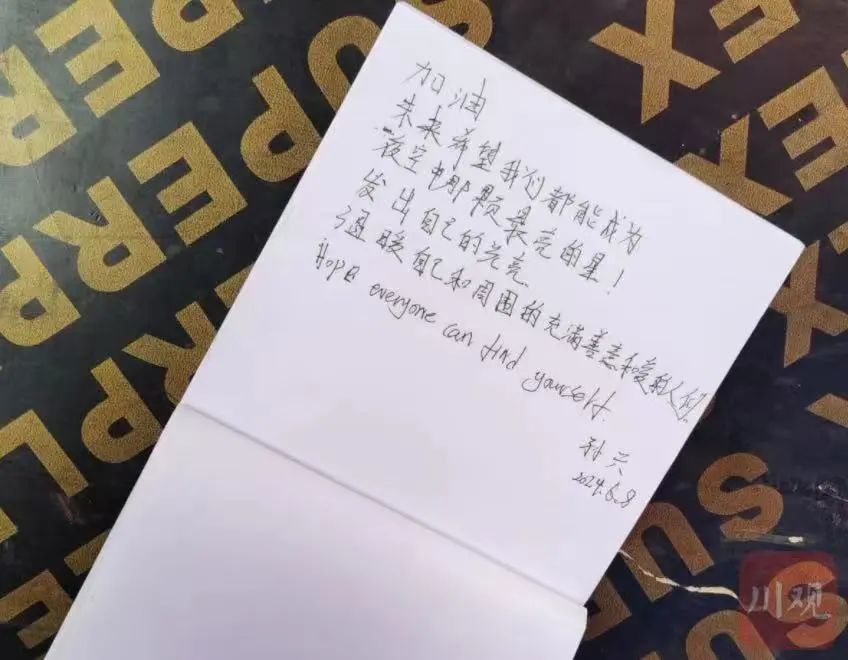 加油
未来希望我们都能成为
夜空中那颗最亮的星！
发出自己的光亮
温暖自己和周围的充满善意和爱的人们.
Hope everyone can find yourself.
孙
2024.6.8
SUPERPLEX
SUPERPLEX
SUPER
PLEX
EX
SUPER
川观